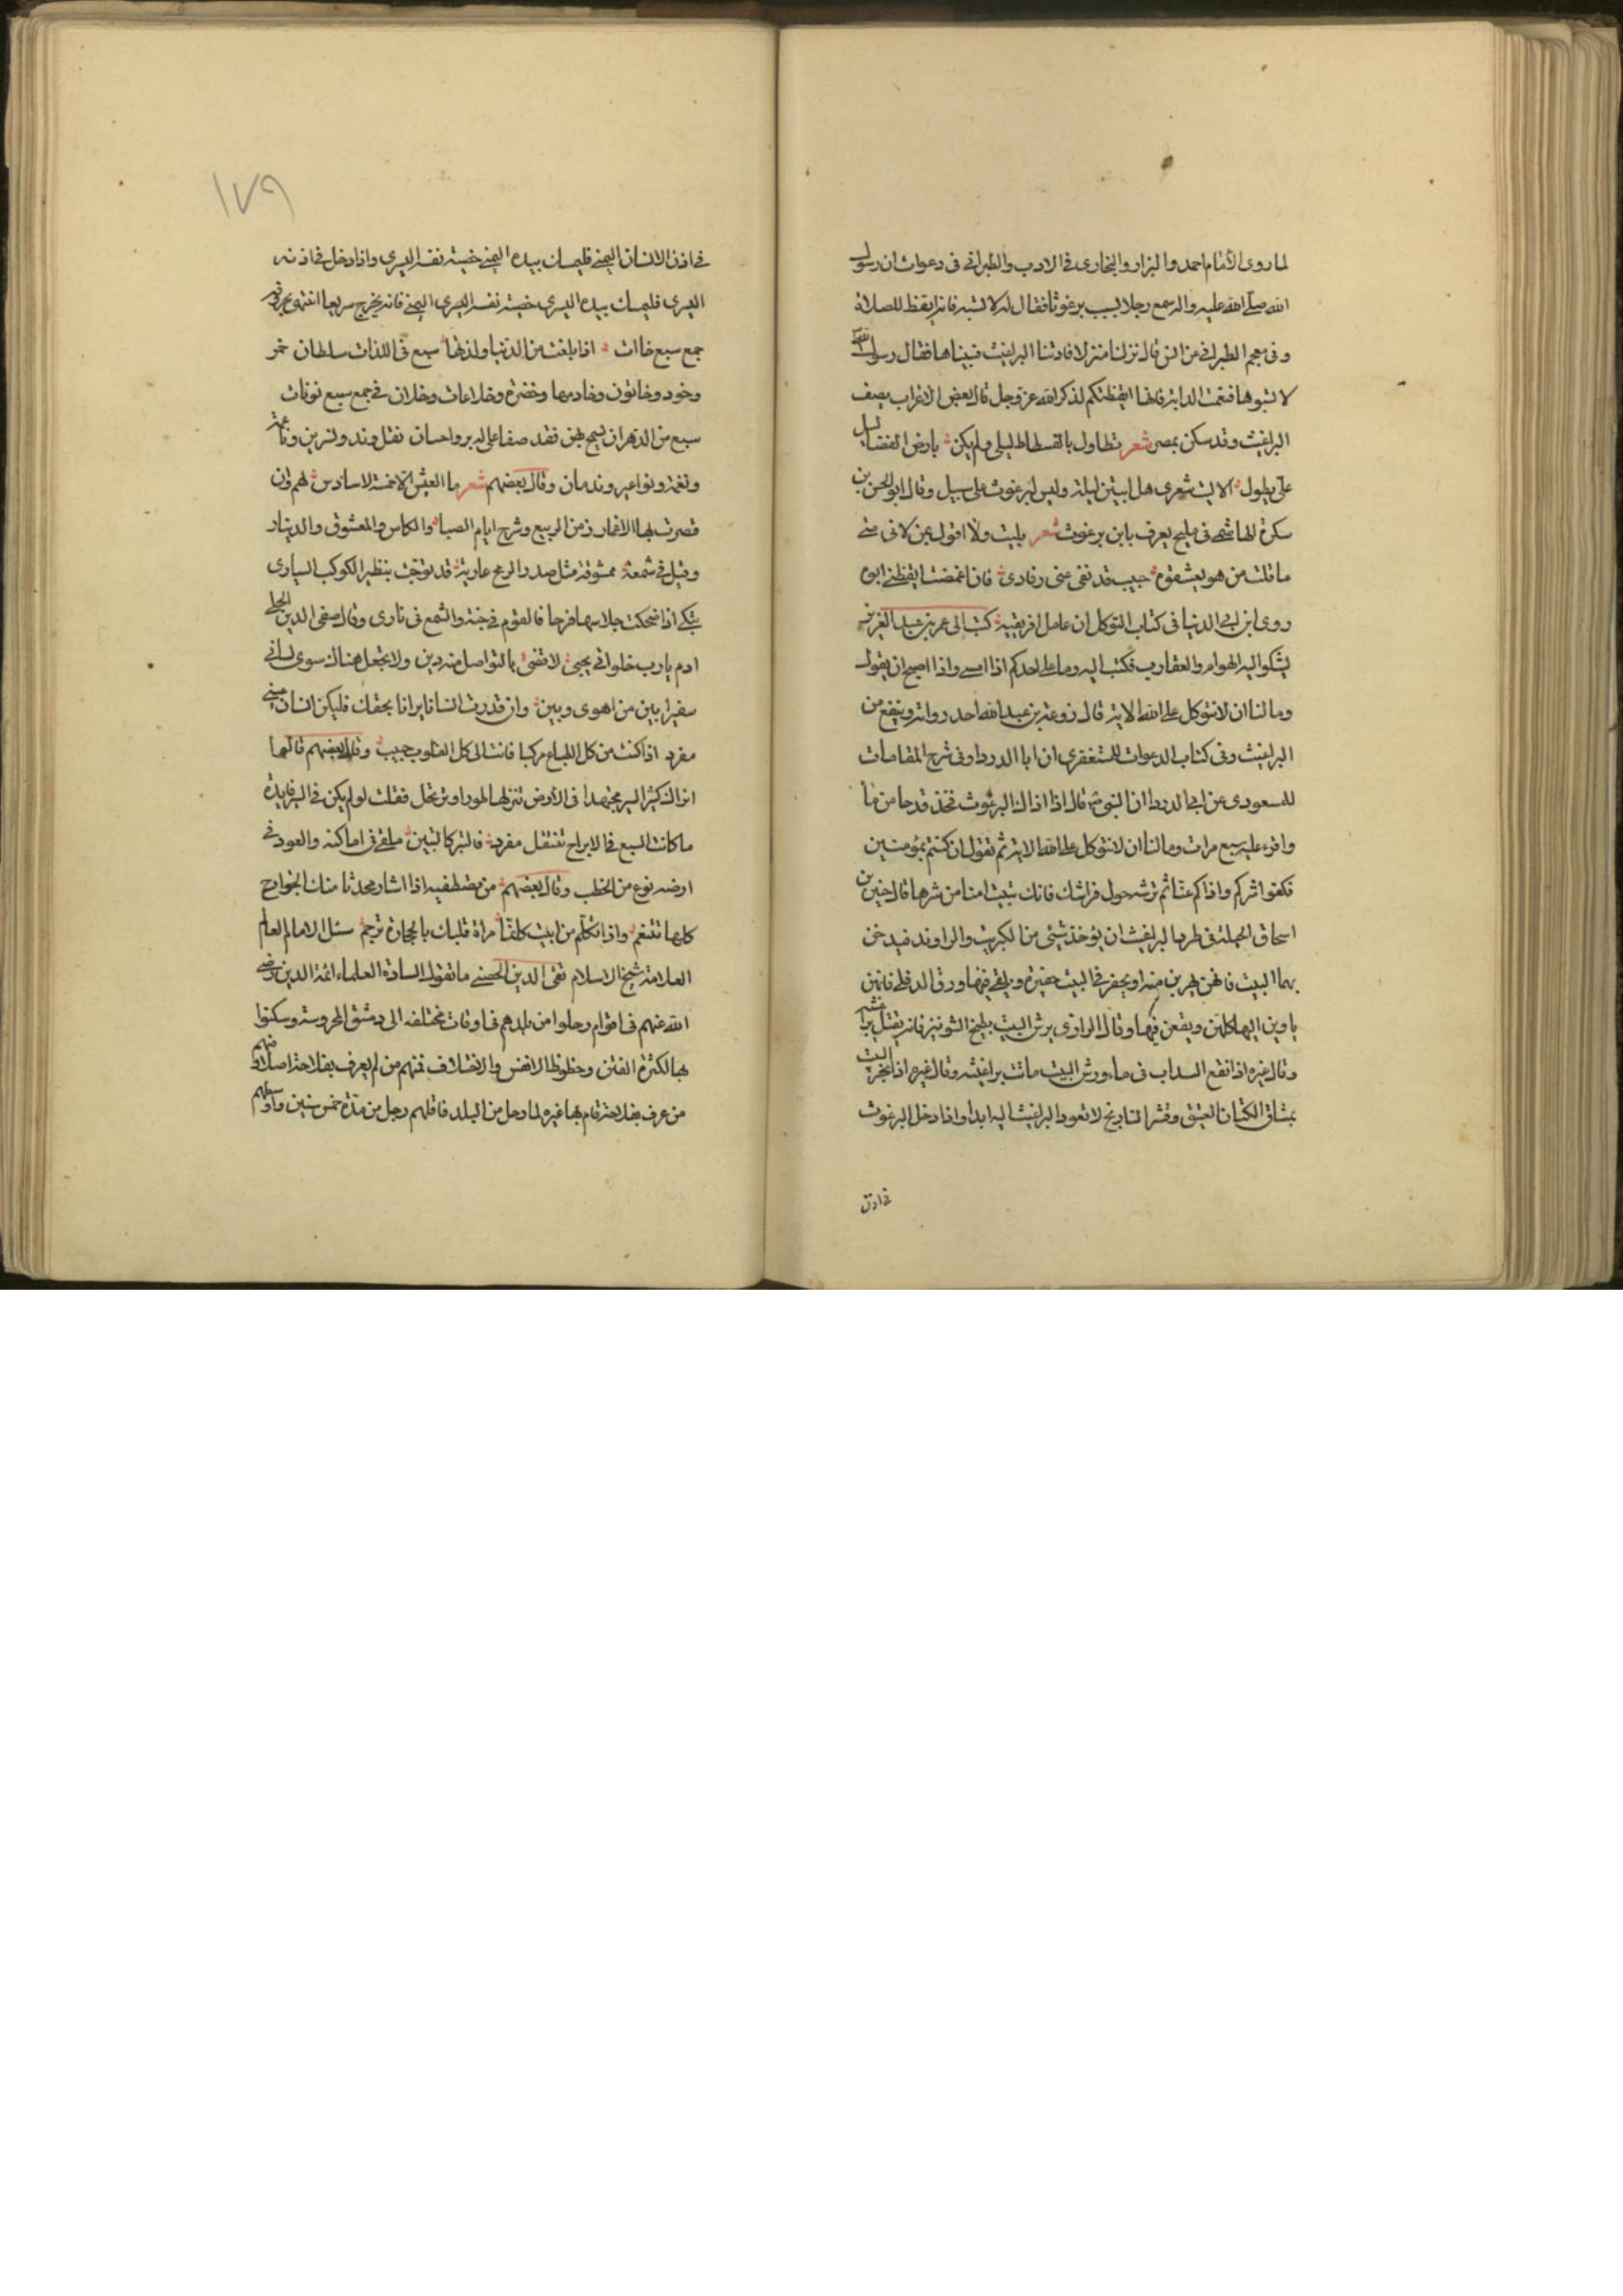 لما روى الأمام احمد والبزار والبخارى فى الادب والطبرانى فى دعوات ان رسول
الله صلى الله عليه واله سمع رجلا يسب برغوثا فقال له لا تسبه فانه ايقظ للصلاة
وفى معجم الطبرانى من انس قال نزلنا منزلا فاذتنا البراغيث فسبناها فقال رسول الله
لا تسبوها فنعمت الدابة فانها ايقظتكم لذكر الله عز وجل قال بعض الاعراب يصف
البراغيث وقد سكن بمصر شعر تطاول بالفسطاط ليلى ولم يكن بارض الفضا ليل
على يطول الا ليت شعرى هل ابيتن ليلة وليس لبرغوث على سبيل وقال ابو الحسن بن
سكرة الهاشمى فى مليح يعرف بابن برغوث شعر بليت ولا اقول بمن لانى متى
ما قلت من هو يعشقوه حبيب قد نفى عنى رقادى فان اغمضت ايقظنى ابوه
روى ابن ابى الدنيا فى كتاب التوكل ان عامل افريقية كتب الى عمر بن عبد العزيز
يشكو اليه الهوام والعقارب فكتب اليه وما على احدكم اذا امسى واذا اصبح ان يقول
وما لنا ان لا نتوكل على الله الاية قال زرعة بن عبد الله احد رواته وينفع من
البراغيث وفى كتاب الدعوات للمستغفرى ان ابا الدرداء وفى شرح المقامات
للمسعودى عن ابى الدرداء ان النبى قال اذا اذاك البرغوث فخذ قدحا من ماء
واقرء عليه سبع مرات وما لنا ان لا نتوكل على الله الاية ثم تقول ان كنتم مؤمنين
فكفوا شركم واذاكم عنا ثم ترشه حول فراشك فانك تبيت امنا من شرها قال حنين بن
اسحاق الحيلة فى طرد البراغيث ان يؤخذ شيئ من الكبريت والراوند فيدخن
بهما البيت فانهن يهربن منه او يحفر فى البيت حفيرة ويلقى فيها ورق الدفلى فانهن
ياوين اليها كلهن ويقعن فيها وقال الرازى يرش البيت بطبيخ الشونيز فانه يقتل براغيثه
وقال غيره اذا نقع السداب فى ماء ورش البيت ماتت براغيثه وقال غيره اذا بخر البيت
بمشاق الكتان العتيق وقشر النارنج لا تعود البراغيث اليه ابدا واذا دخل البرغوث
فى اذن
١٧٩
فى اذن الانسان اليمنى فليمسك بيده اليمنى خصية نفسه اليسرى واذا دخل فى اذنه
اليسرى فليمسك بيده اليسرى خصية نفسه اليمنى فانه يخرج سريعا انتهى
جمع سبع خاات اذا بلغت من الدنيا ولذتها سبع فى اللذات سلطان خمر
وخود وخاتون وخادمها وخضرة وخلاعات وخلان فى جمع سبع نونات
سبع من الدهر ان يسمح بهن فقد صفا على الدهر واحسان نقل وند ونسرين
ونغمة ونواعير وندمان وقال بعضهم شعر ما العيش الا خمسة لا سادس لهم وان
قصرت بها الاعمار زمن الربيع وشرح ايام الصبا والكاس والمعشوق والدينار
وقيل فى شمعة ممشوقة مثل صدر الرمح عارية قد توجت بنظير الكوكب السارى
تبكى اذا ضحكت جلاسها فرحا فالقوم فى جنة والشمع فى نارى وقال صفى الدين الحلى
ادم يارب خلواتى بحبى لا تقضى بالتواصل منه دين ولا تجعل هناك سوى لسانى
سفيرا بين من اهوى وبين وان قدرت انسانا يرانا بحقك فليكن انسان عينى
مفرد اذا كنت من كل الطباع مركبا فانت الى كل القلوب حبيب وقال بعضهم قالها
اراك كثير السير مجتهدا فى الأرض تنزلها طورا وترتحل فقلت لو لم يكن فى السير فايدة
ما كانت السبع فى الابراج تنتقل مفرد فالتبر كالتبن ملقى فى اماكنه والعود فى
ارضه نوع من الحطب وقال بعضهم من مصطفيه اذا اشار محدثا منك الجوارح
كلها تتنغم واذا تكلم من ابيت كلفا مراة قلبك بالحجارة ترجم سئل الامام العالم
العلامة شيخ الاسلام تقى الدين الحصنى ما تقول السادة العلماء ائمة الدين رضى
الله عنهم فى اقوام رحلوا من بلدهم فى اوقات مختلفه الى دمشق المحروسة وسكنوا
بها لكثرة الفتن وحظوظ الانفس والاختلاف فمنهم من لم يعرف بفلاحة اصلا ومنهم
من عرف بفلاحة قام بها غيره لما رحل من البلد فاقلهم رجل من مدة خمس سنين واوسطهم